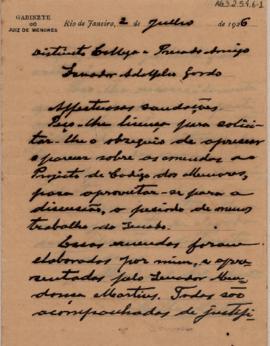 AG3.2.5.4.6-1
GABINETE
DO
JUIZ DE MENORES
Rio de Janeiro, 2 de Julho de 1926
Distincto Collega e Presado Amigo
Senador Adolpho Gordo
Affectuosas saudações.
Peço-lhe licença para solicitar-lhe o obsequio de apressar
o parecer sobre as emendas ao
Projecto de Codigo dos Menores,
para aproveitar-se para a
discussão, o periodo de menos
trabalho do Senado.
Essas emendas foram
elaboradas por mim, e apresentadas pelo Senador Mendonça Martins. Todas são
acompanhadas de justifi-